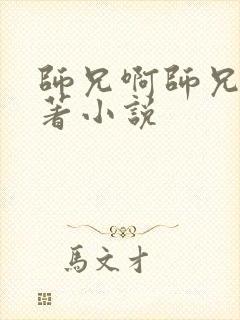 師兄啊師兄
著小說
馬文才